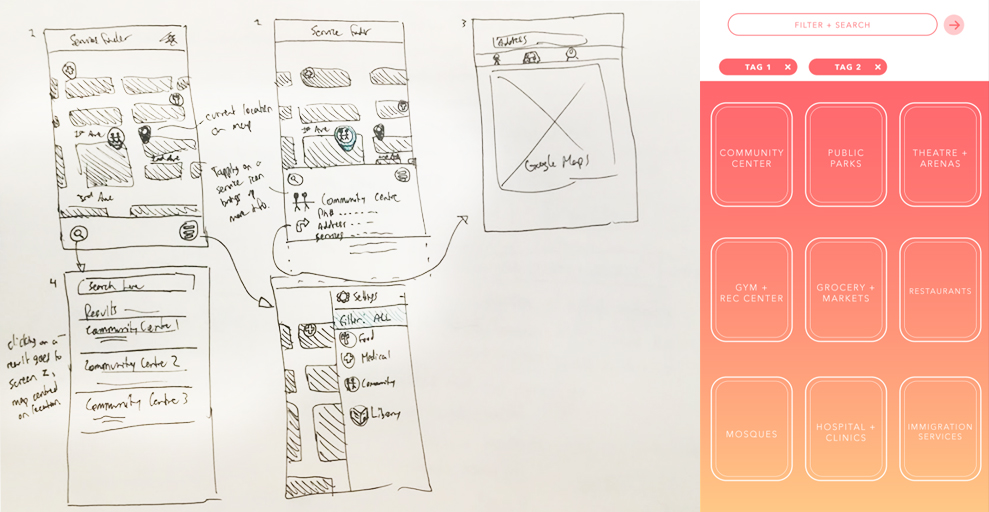 1
Service finder
1st Ave
2nd Ave
3rd Ave
current location
on map
Tapping on a
service icon
brings up
more info.
2
Service finder
1st Ave
Community Centre
Address
Services
3
Address
Google Maps
4
Search here
Results
Community Centre 1
Community Centre 2
Community Centre 3
clicking on a
result goes to
screen 2,
map centred
on location
Settings
Filter: ALL
Food
Medical
Community
Library
FILTER + SEARCH
TAG 1 ×
TAG 2 ×
COMMUNITY
CENTER
PUBLIC
PARKS
THEATRE +
ARENAS
GYM +
REC CENTER
GROCERY +
MARKETS
RESTAURANTS
MOSQUES
HOSPITAL +
CLINICS
IMMIGRATION
SERVICES